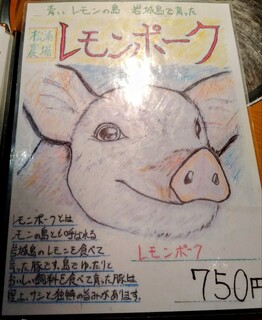 青いレモンの島 岩城島で育った
松浦
農場
レモンポーク
レモンポークとは
レモンの島とも呼ばれる
岩城島のレモンを食べて
育った豚です。島でゆったりと
おいしい飼料を食べて育った豚は
独特の旨みがあります。
レモンポーク
750円